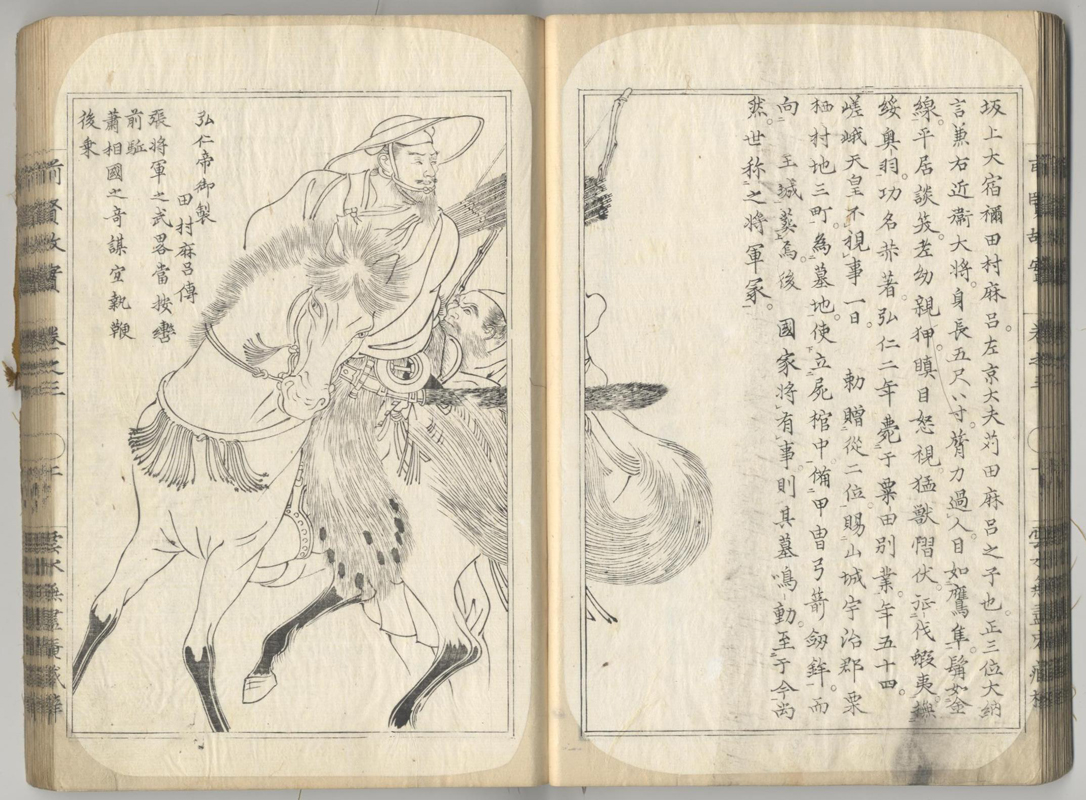 坂上大宿禰田村麻呂。左京大夫苅田麻呂之子也。正三位大納
言兼右近衛大将。身長五尺八寸。膂力過人。目如鷹隼。鬚如金
線。平居談笑。老幼親狎。瞋目怒視。猛獣慴伏。征伐蝦夷。撫
綏奥羽。功名茶著。弘仁二年薨于粟田別業。年五十四。
嵯峨天皇不視事一日。勅贈從二位。賜山城宇治郡粟
栖村地三町。為墓地。使立屍棺中。備甲冑弓箭劔鉾。而
向王城葬焉。後國家将有事。則其墓鳴動。至于今尚
然。世称之将軍冢。
弘仁帝御製
田村麻呂傳
張將軍之武畧當按轡
前駈
蕭相國之奇謀宜執鞭
後乗
前賢故實 巻之三